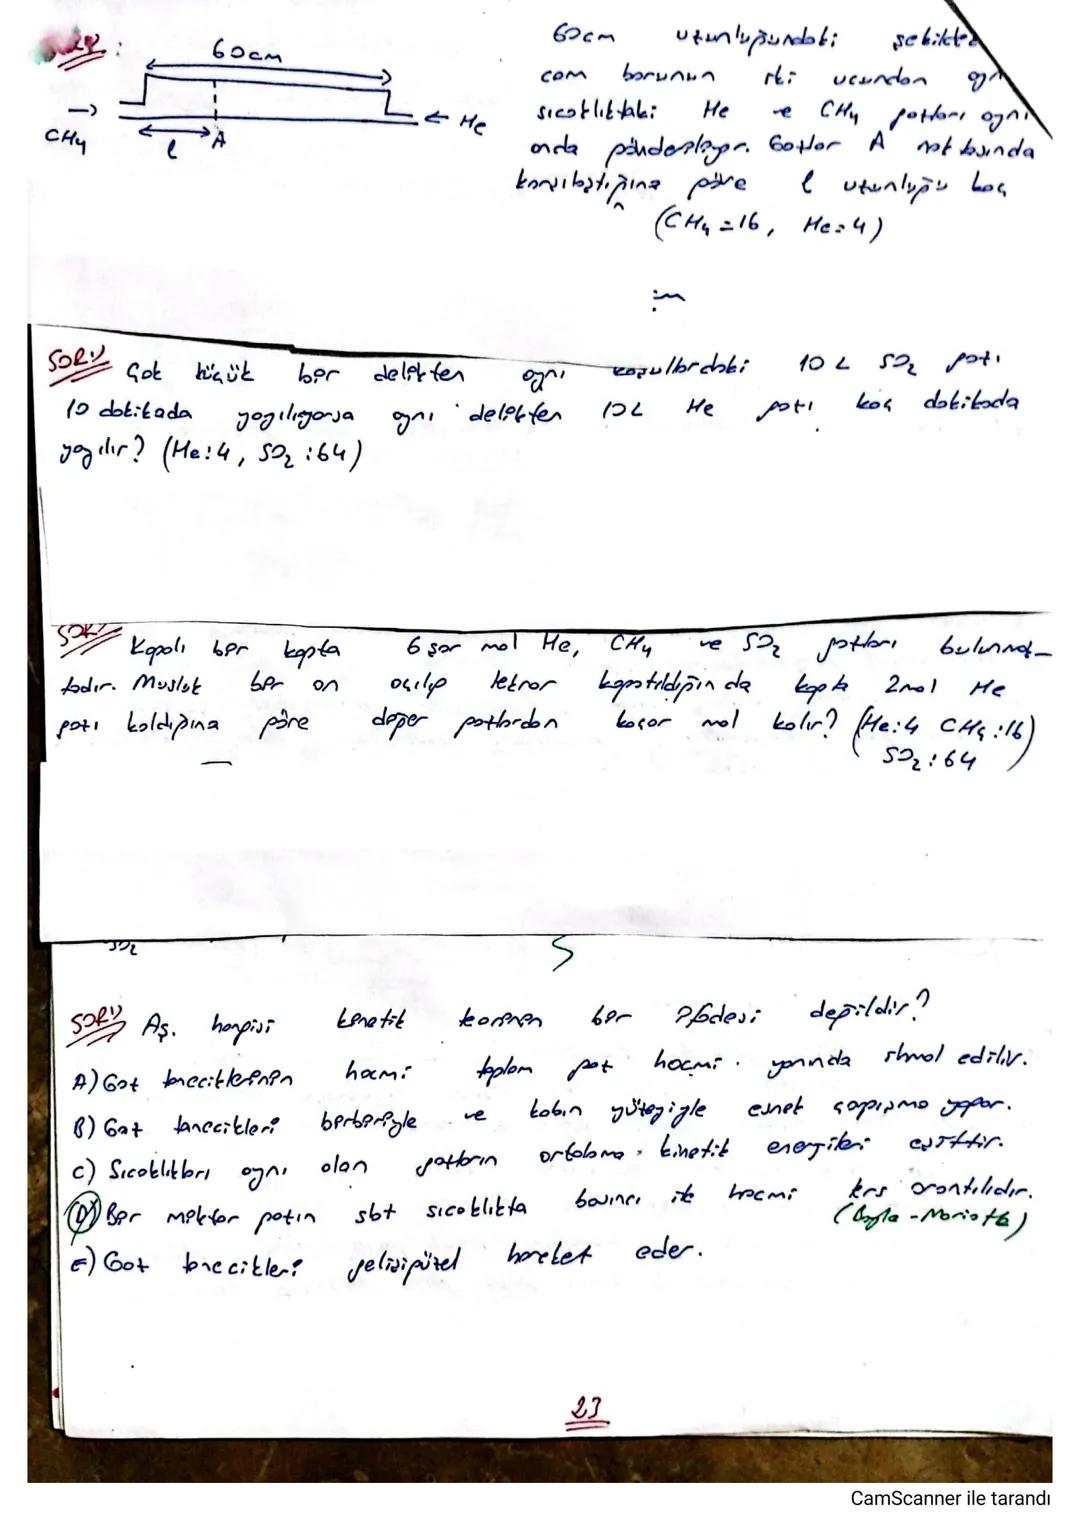 60cm
CH4
l
A
He
60cm uzunluğundaki şekildeki
cam borunun iki ucundan aynı
sıcaklıktaki He ve CH4 gazları aynı
anda gönderiliyor. Gazlar A noktasında
karşılaştığına göre l uzunluğu kaç
(CH4=16, He=4)
SORU Çok küçük bir delikten aynı koşullardaki 10 L SO2 gazı
10 dakikada yayılıyorsa aynı delikten 10L He gazı kaç dakikada
yayılır? (He:4, SO2:64)
SORU Kapalı bir kapta 6şar mol He, CH4 ve SO2 gazları bulunmak-
tadır. Musluk bir an açılıp tekrar kapatıldığında kapta 2mol He
gazı kaldığına göre diğer gazlardan kaçar mol kalır? (He:4 CH4:16)
SO2:64
SO2
SORU Aş. hangisi kinetik koramın bir ifadesi değildir?
A) Gaz taneciklerinin hacmi toplam gaz hacmi yanında ihmal edilir.
B) Gaz tanecikleri birbiriyle ve kabın yüzeyiyle esnek çarpışma yapar.
C) Sıcaklıkları aynı olan gazların ortalama kinetik enerjileri eşittir.
D) Bir miktar gazın sbt sıcaklıkta basıncı ile hacmi ters orantılıdır.
(Boyle-Mariotte)
E) Gaz tanecikleri gelişigüzel hareket eder.
23
CamScanner ile tarandı